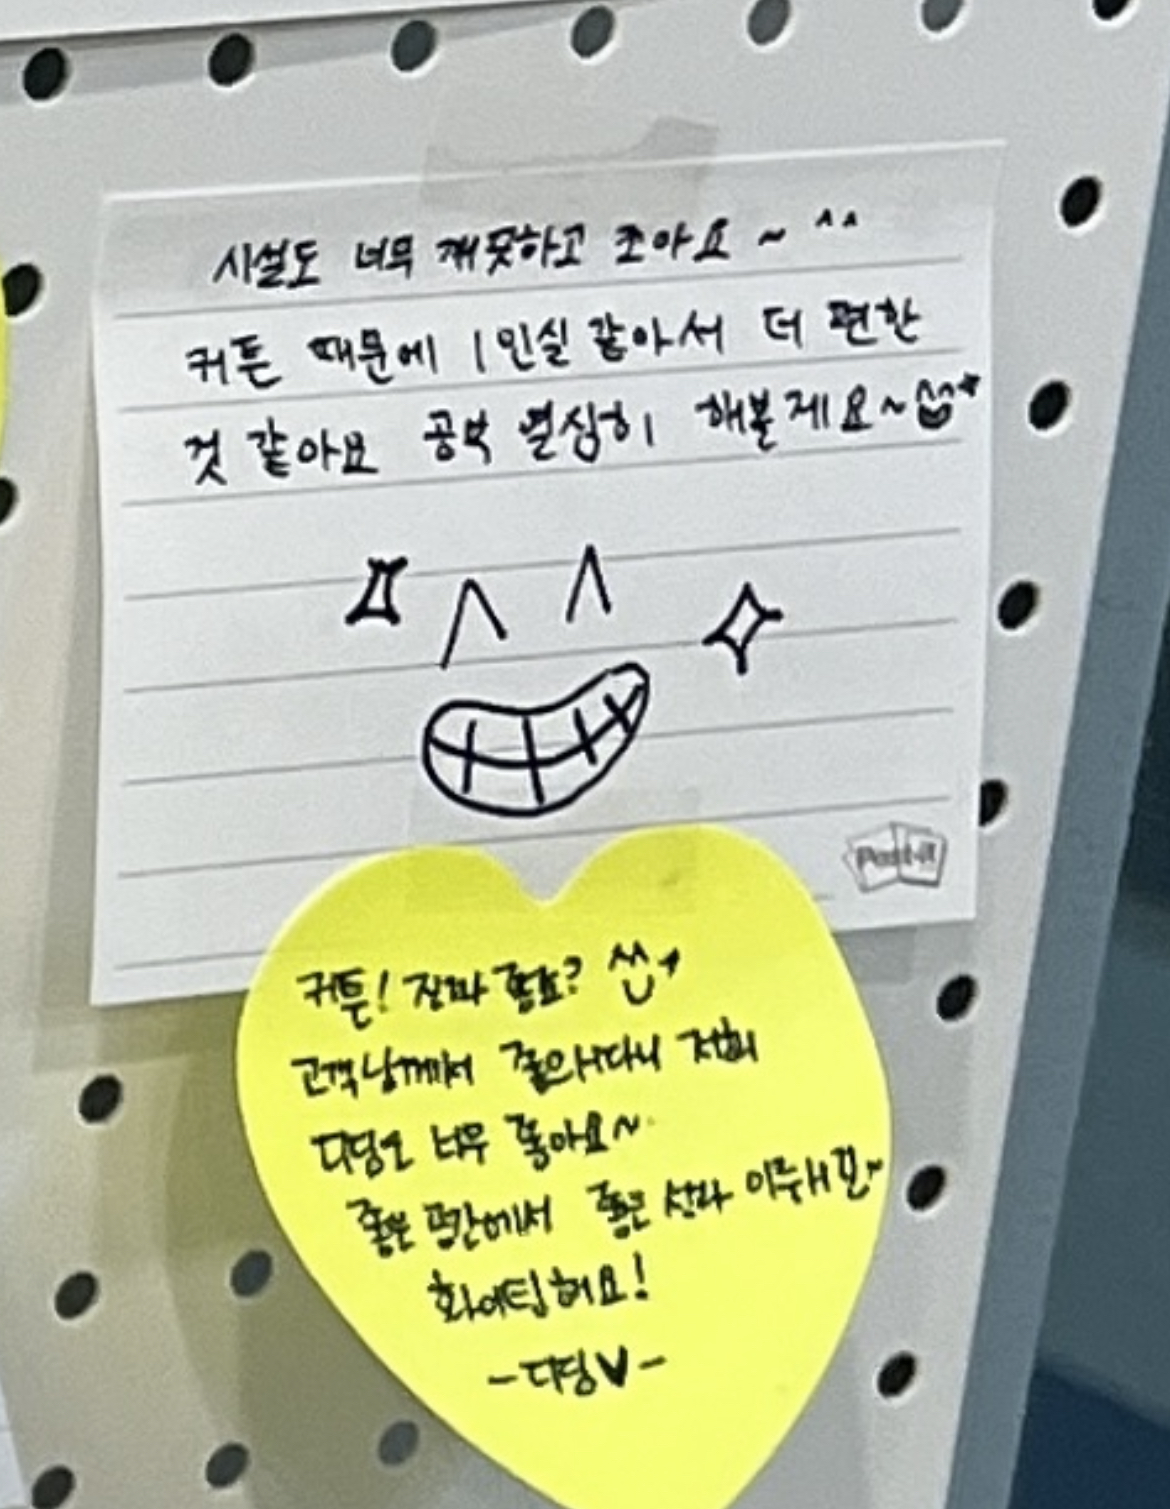 시설도 너무 깨끗하고 조아요~ ^^
커튼 때문에 1인실 같아서 더 편한
것 같아요 공부 열심히 해볼게요~
Post-it
커튼! 진짜 좋죠?
고객님께서 좋으시다니 저희
디딩도 너무 좋아요~
좋은 공간에서 좋은 성과 이루시길~
화이팅해요!
-디딩♥-